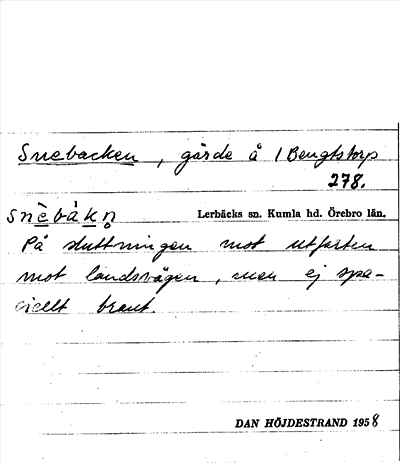 Snebacken, gärde å 1 Bengtstorp
278.
snèbàkn̥ Lerbäcks sn. Kumla hd. Örebro län.
På sluttningen mot utfarten
mot landsvägen, men ej spe-
ciellt brant.
DAN HÖJDESTRAND 1958